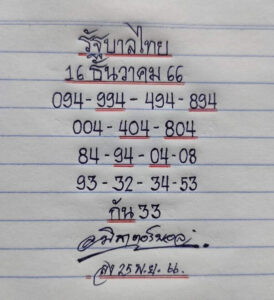 รัฐบาลไทย
16 ธันวาคม 66
094-994-494-894
004-404-804
84-94-04-08
93-32-34-53
กัน 33
25 พ.ย. 66.